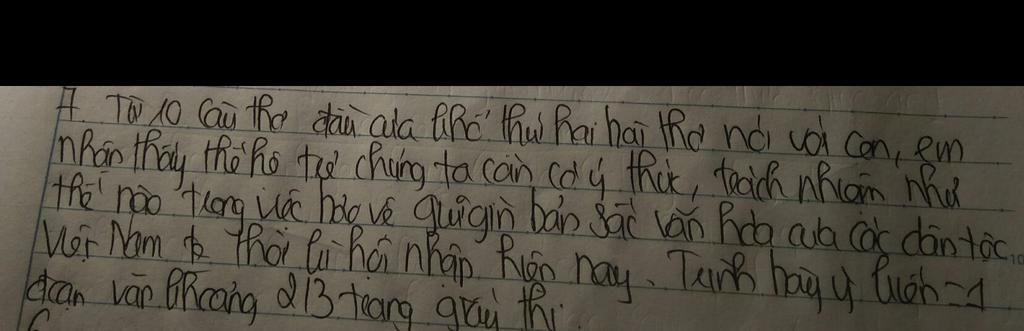 7. Từ 10 câu thơ đầu của khổ thứ hai bài thơ nói với con, em
nhận thấy thế hệ trẻ chúng ta cần có ý thức, trách nhiệm như
thế nào trong việc bảo vệ giữ gìn bản sắc văn hóa của các dân tộc
Việt Nam thời kì hội nhập hiện nay. Trình bày ý kiến = 1
đoạn văn khoảng 2/3 trang giấy thi.